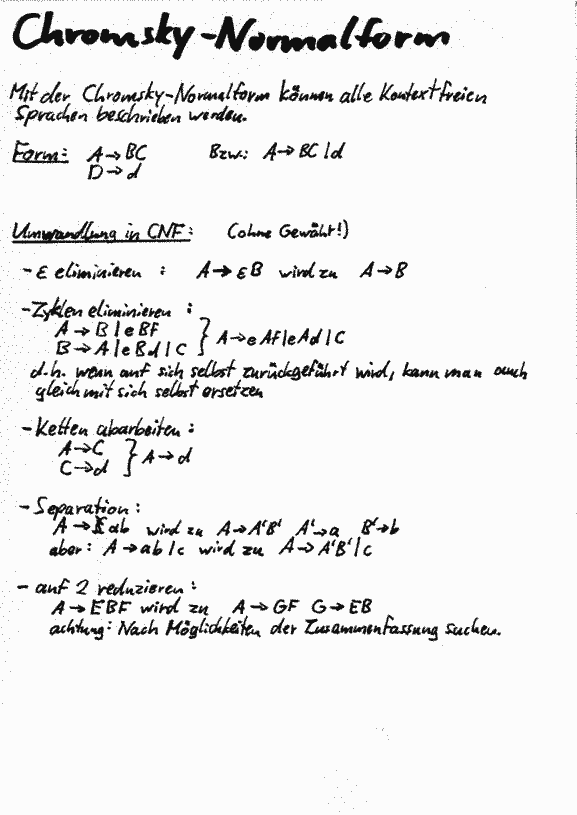 Chromsky-Normalform
Mit der Chromsky-Normalform können alle Kontextfreien
Sprachen beschrieben werden.
Form: A → BC Bzw.: A → BC | d
D → d
Umwandlung in CNF: (ohne Gewähr!)
- ε eliminieren : A → εB wird zu A → B
- Zyklen eliminieren :
A → B | e BF
B → A | e B d | C } A → e AF | e A d | C
d.h. wenn auf sich selbst zurückgeführt wird, kann man auch
gleich mit sich selbst ersetzen
- Ketten abarbeiten :
A → C
C → d } A → d
- Separation :
A → ab wird zu A → A'B' A' → a B' → b
aber : A → ab | c wird zu A → A'B' | c
- auf 2 reduzieren :
A → EBF wird zu A → GF G → EB
achtung : Nach Möglichkeiten der Zusammenfassung suchen.